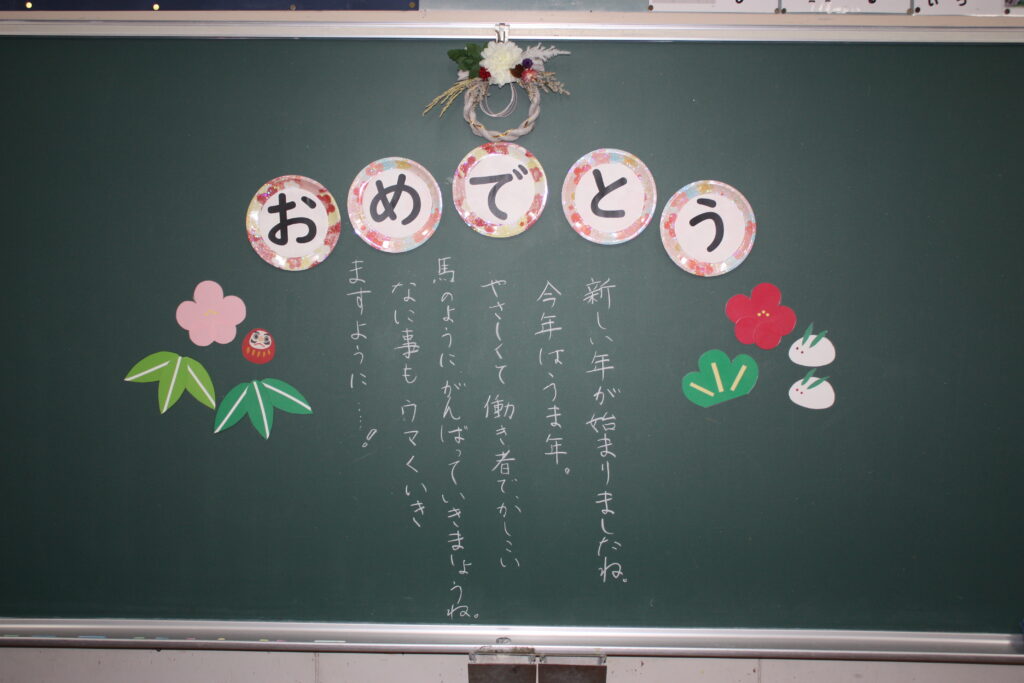 おめでとう
新しい年が始まりましたね。
今年はうま年。
やさしくて働き者で、かしこい
馬のようにがんばっていきましょうね。
なに事もウマくいき
ますように……!